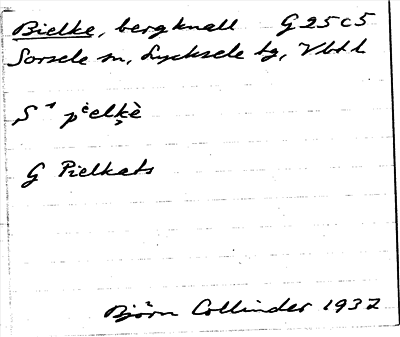 Bielke, bergknall G25c5
Sorsele sn, Lycksele lg, Vbtl
S pielkè
G Pielkats
Björn Collinder 1937